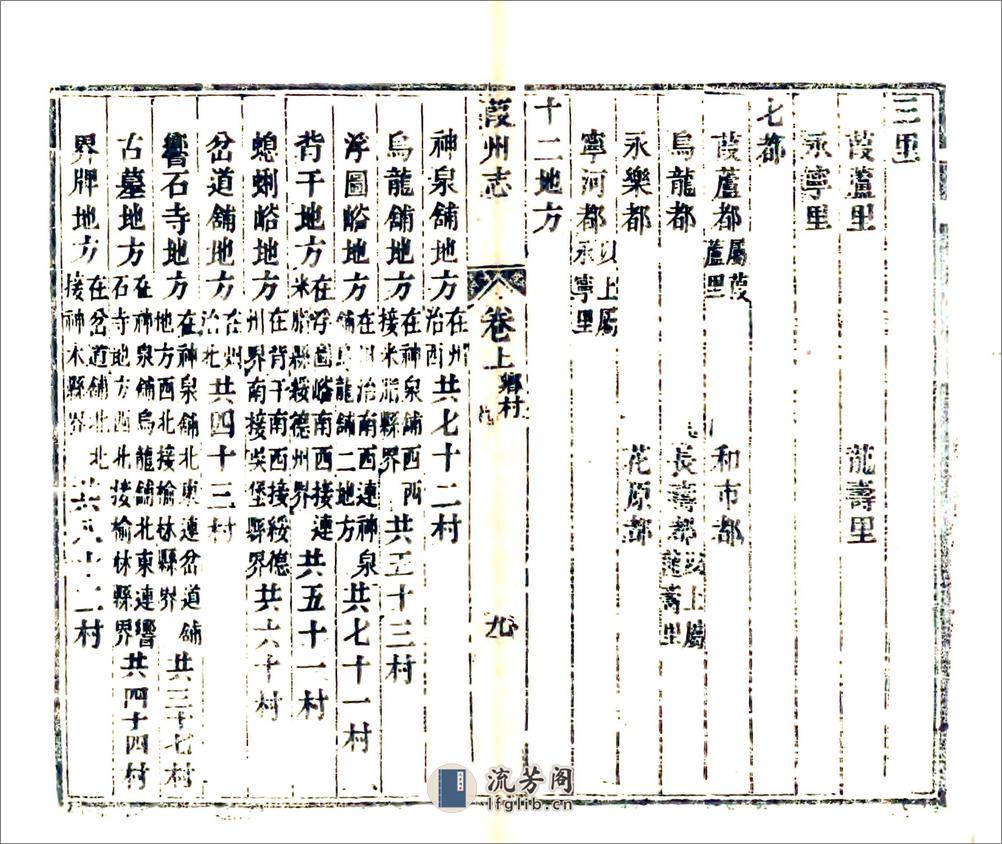 三里
葭蘆里 龍壽里
永寧里
七都
葭蘆都 屬葭蘆里 和市都
烏龍都 長壽都 以上屬龍壽里
永樂都 花原都
寧河都 以上屬永寧里
十二地方
葭州志 卷上 鄉村 九
神泉舖地方 在州治西 共七十二村
烏龍舖地方 在神泉舖西西接米脂縣界 共五十三村
浮圖峪地方 在州治南西連神泉舖烏龍舖二地方 共七十一村
背干地方 在浮圖峪南西接連米脂縣綏德州界 共五十一村
螅蜊峪地方 在背干南西接綏德州界南接吳堡縣界 共六十村
岔道舖地方 在州治北 共四十三村
響石寺地方 在神泉舖北東連岔道舖地方西北接榆林縣界 共三十七村
古墓地方 在神泉舖烏龍舖北東連響石寺地方西北接榆林縣界 共四十四村
界牌地方 在岔道舖北北接神木縣界 共八十二村
流芳阁
lfglib.cn